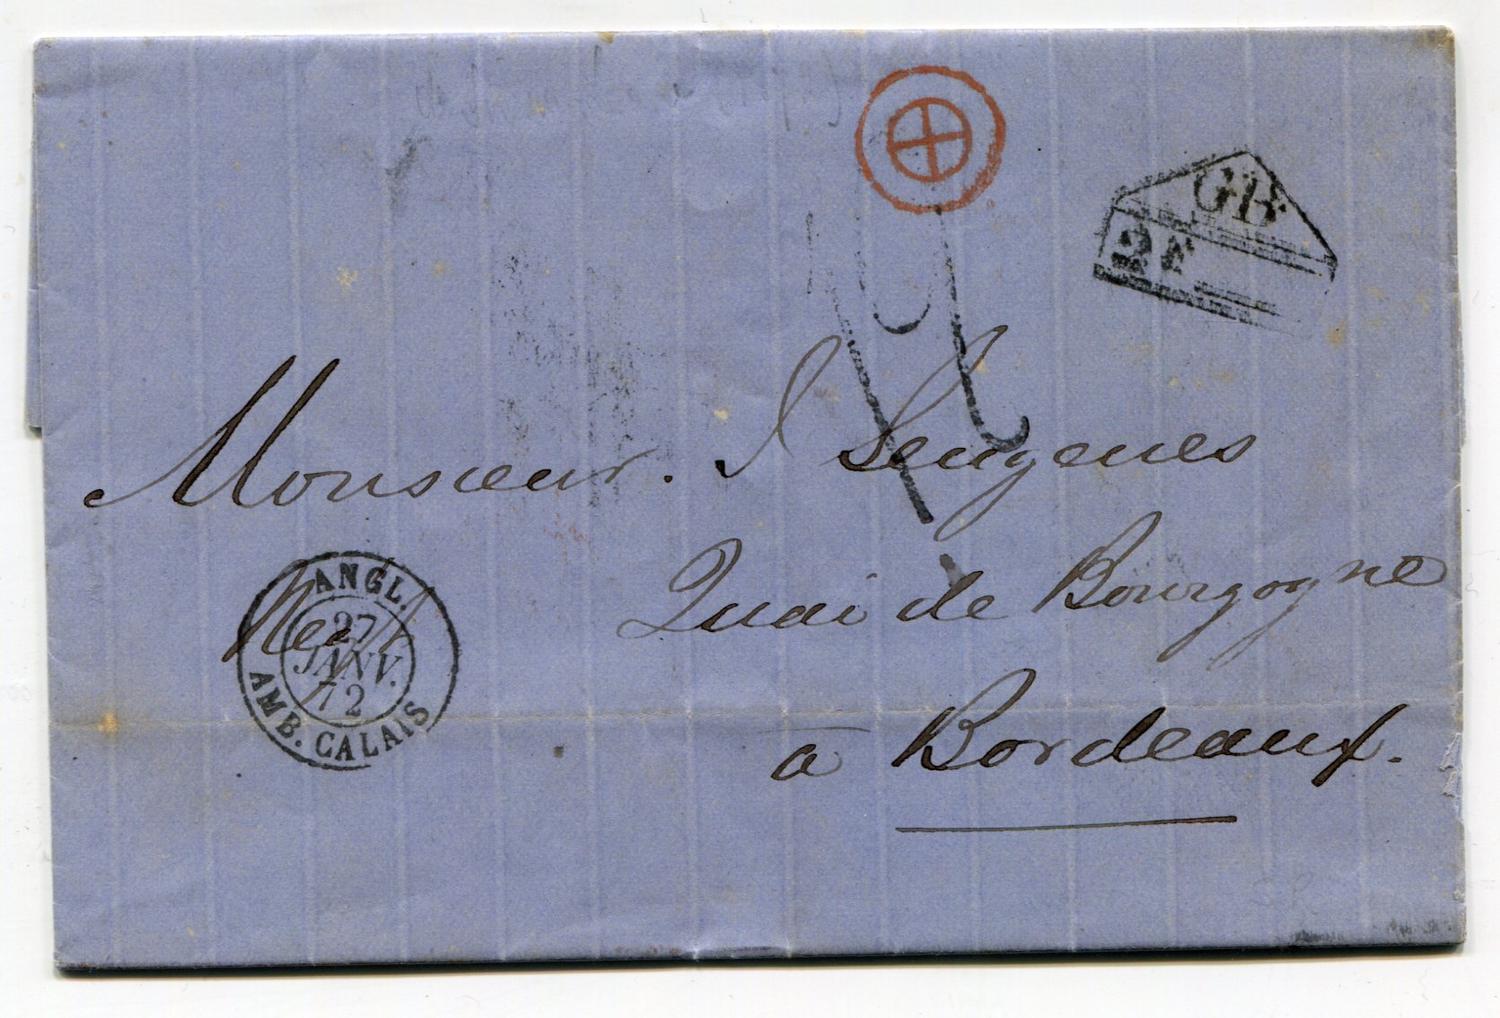 GB
2F
Monsieur. J Seugenes
Quai de Bourgogne
à Bordeaux.
ANGL.
27
JANV.
72
AMB. CALAIS